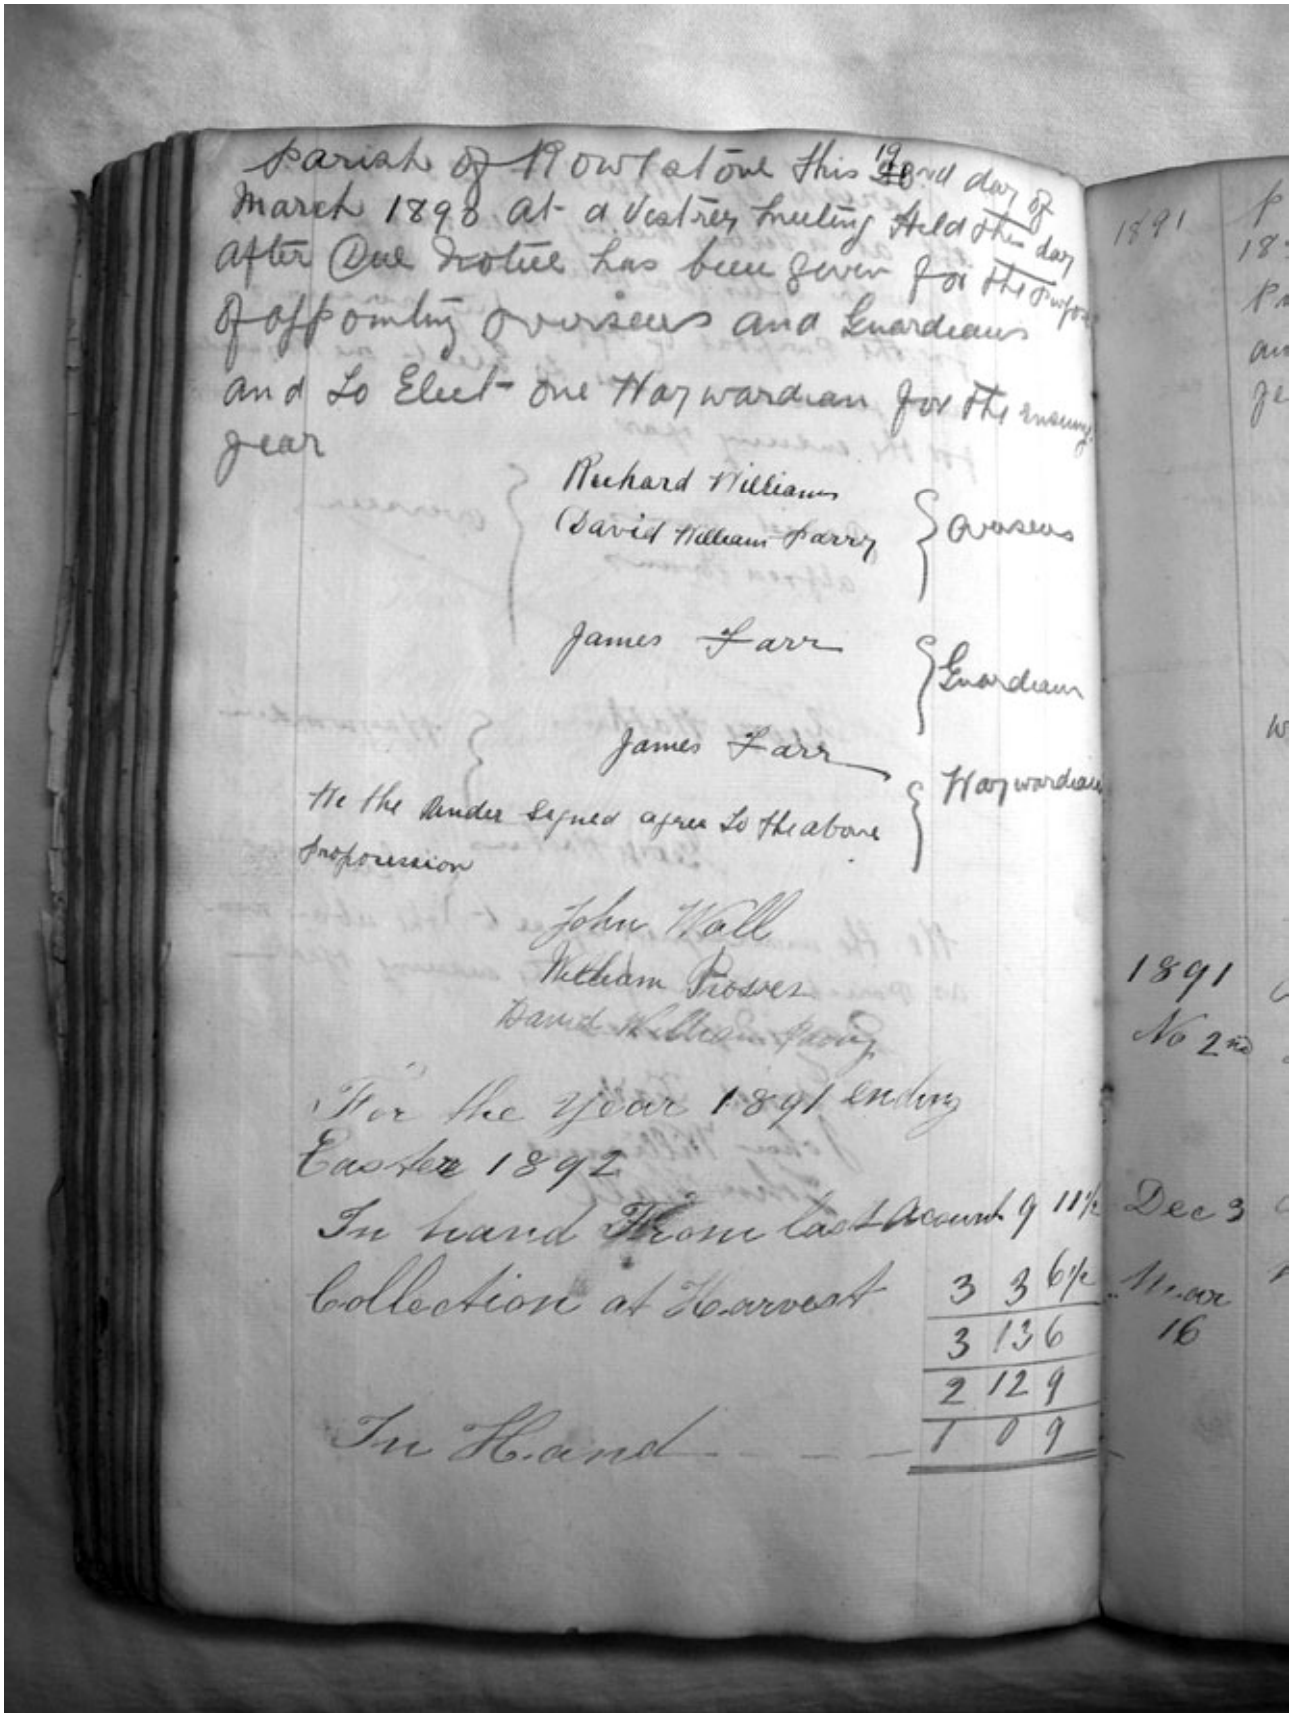 Parish of Rowlstone this 19 day of
March 1893 at a Vestrey meeting Held this day
after Due Notice has been given for the Purpose
of appointing overseers and Guardians
and to Elect one Waywardian for the ensuing
year
Richard Williams
David William Parry
} overseers
James Farr
} Guardian
James Farr
} Waywardian
We the Under signed agree to the above
proposession
John Wall
William Prosser
David William Parry
For the year 1891 ending
Easter 1892
In hand From last Acount 9 11½
Collection at Harvest 3 3 6½
3 13 6
2 12 9
In Hand - - - 1 0 9
1891
18
1891
No 2nd
Dec 3
Mar
16